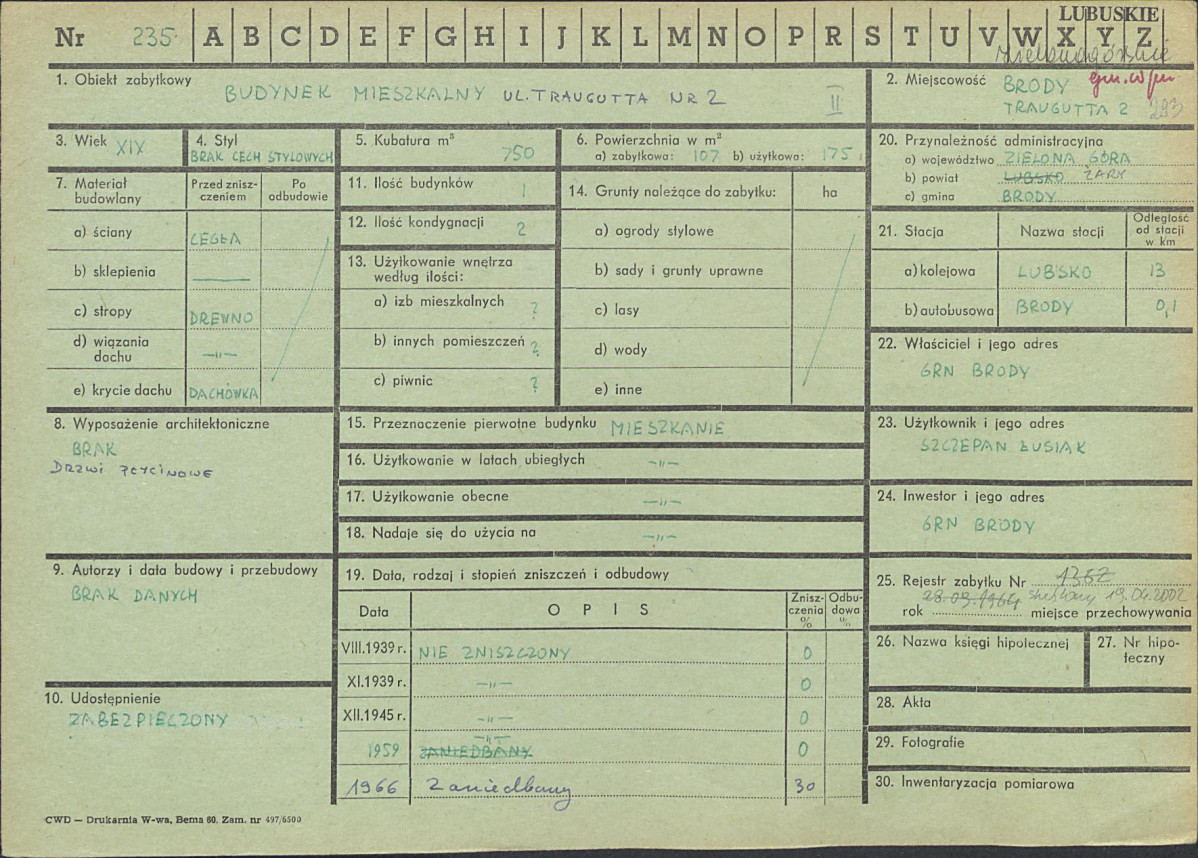 LUBUSKIE
Nr 235 A B C D E F G H I J K L M N O P R S T U V W X Y Z
1. Obiekt zabytkowy
BUDYNEK MIESZKALNY UL. TRAUGUTTA NR 2 II
2. Miejscowość BRODY
TRAUGUTTA 2 293
3. Wiek XIX
4. Styl
BRAK CECH STYLOWYCH
5. Kubatura m³
750
6. Powierzchnia w m²
a) zabytkowa: 107 b) użytkowa: 175
20. Przynależność administracyjna
a) województwo ZIELONA GÓRA
b) powiat LUBSKO ŻARY
c) gmina BRODY
7. Materiał budowlany
Przed zniszczeniem
Po odbudowie
a) ściany CEGŁA
b) sklepienia —
c) stropy DREWNO
d) wiązania dachu —„—
e) krycie dachu DACHÓWKA
11. Ilość budynków 1
12. Ilość kondygnacji 2
13. Użytkowanie wnętrza według ilości:
a) izb mieszkalnych ?
b) innych pomieszczeń ?
c) piwnic ?
14. Grunty należące do zabytku: ha
a) ogrody stylowe
b) sady i grunty uprawne
c) lasy
d) wody
e) inne
21. Stacja Nazwa stacji Odległość od stacji w km
a) kolejowa LUBSKO 13
b) autobusowa BRODY 0,1
22. Właściciel i jego adres
GRN BRODY
8. Wyposażenie architektoniczne
BRAK
DRZWI PŁYCINOWE
15. Przeznaczenie pierwotne budynku MIESZKANIE
16. Użytkowanie w latach ubiegłych —„—
17. Użytkowanie obecne —„—
18. Nadaje się do użycia na —„—
23. Użytkownik i jego adres
SZCZEPAN ŁUSIAK
24. Inwestor i jego adres
GRN BRODY
9. Autorzy i data budowy i przebudowy
BRAK DANYCH
19. Data, rodzaj i stopień zniszczeń i odbudowy
Data OPIS Zniszczenia % Odbudowa %
VIII.1939 r. NIE ZNISZCZONY 0
XI.1939 r. —„— 0
XII.1945 r. —„— 0
—„—
1959 ZANIEDBANY 0
1966 Zaniedbany 30
25. Rejestr zabytku Nr 1362
28.09.1964 skreślony 19.04.2002
rok miejsce przechowywania
26. Nazwa księgi hipotecznej
27. Nr hipoteczny
28. Akta
29. Fotografie
30. Inwentaryzacja pomiarowa
10. Udostępnienie
ZABEZPIECZONY
CWD — Drukarnia W-wa, Bema 60. Zam. nr 497/6500